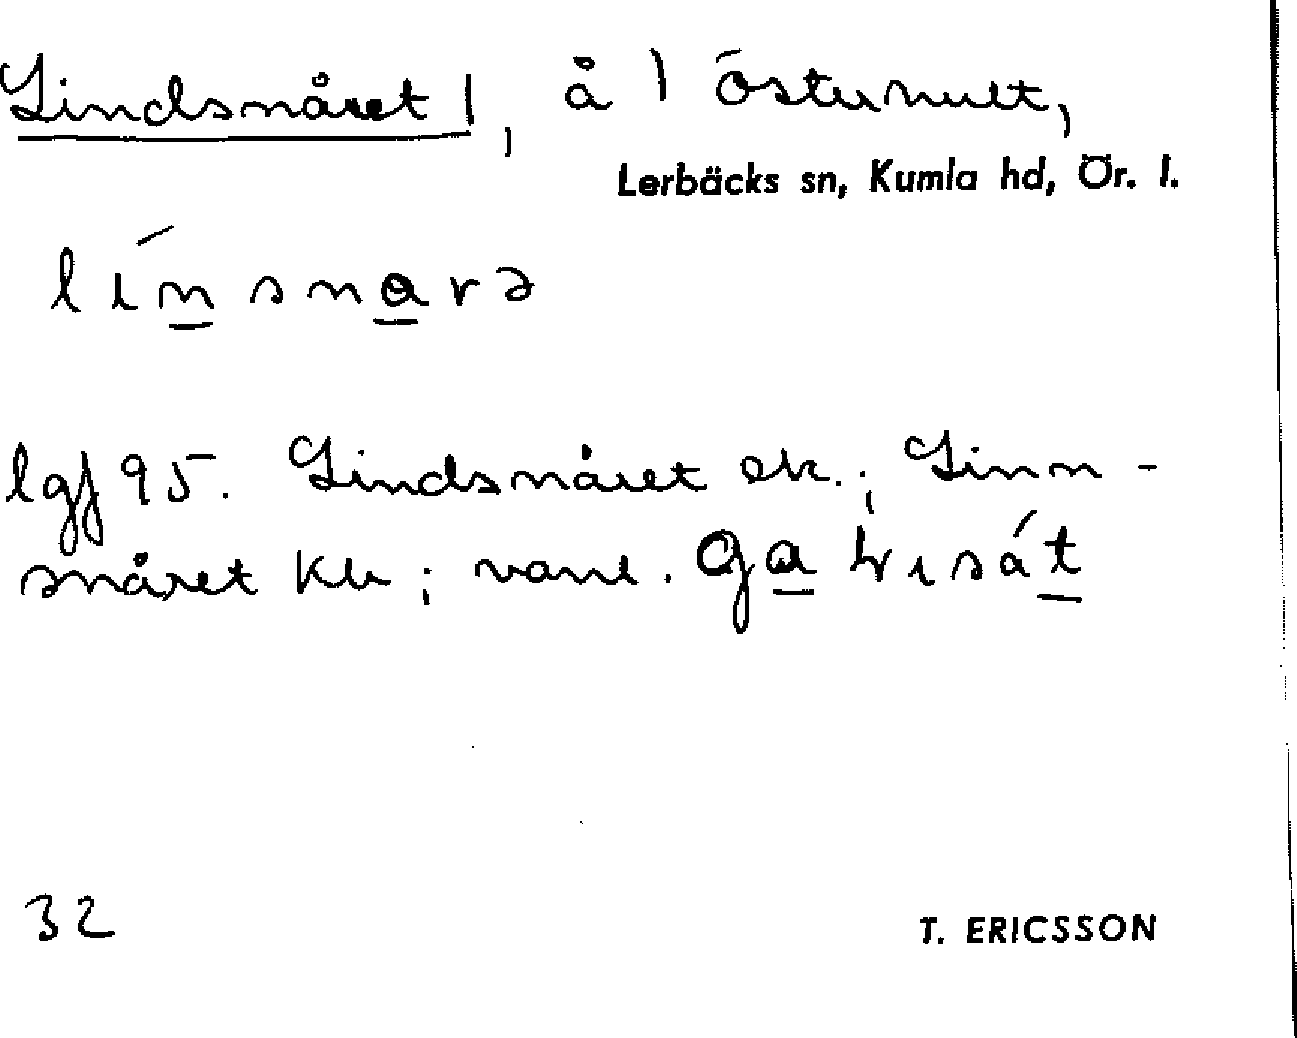 Lindsnåret 1, å 1 Östernult,
Lerbäcks sn, Kumla hd, Ör. l.
línsnarə
lgf 95. Lindsnåret ek.; Linn-
snåret Kb; vanl.
32
T. ERICSSON